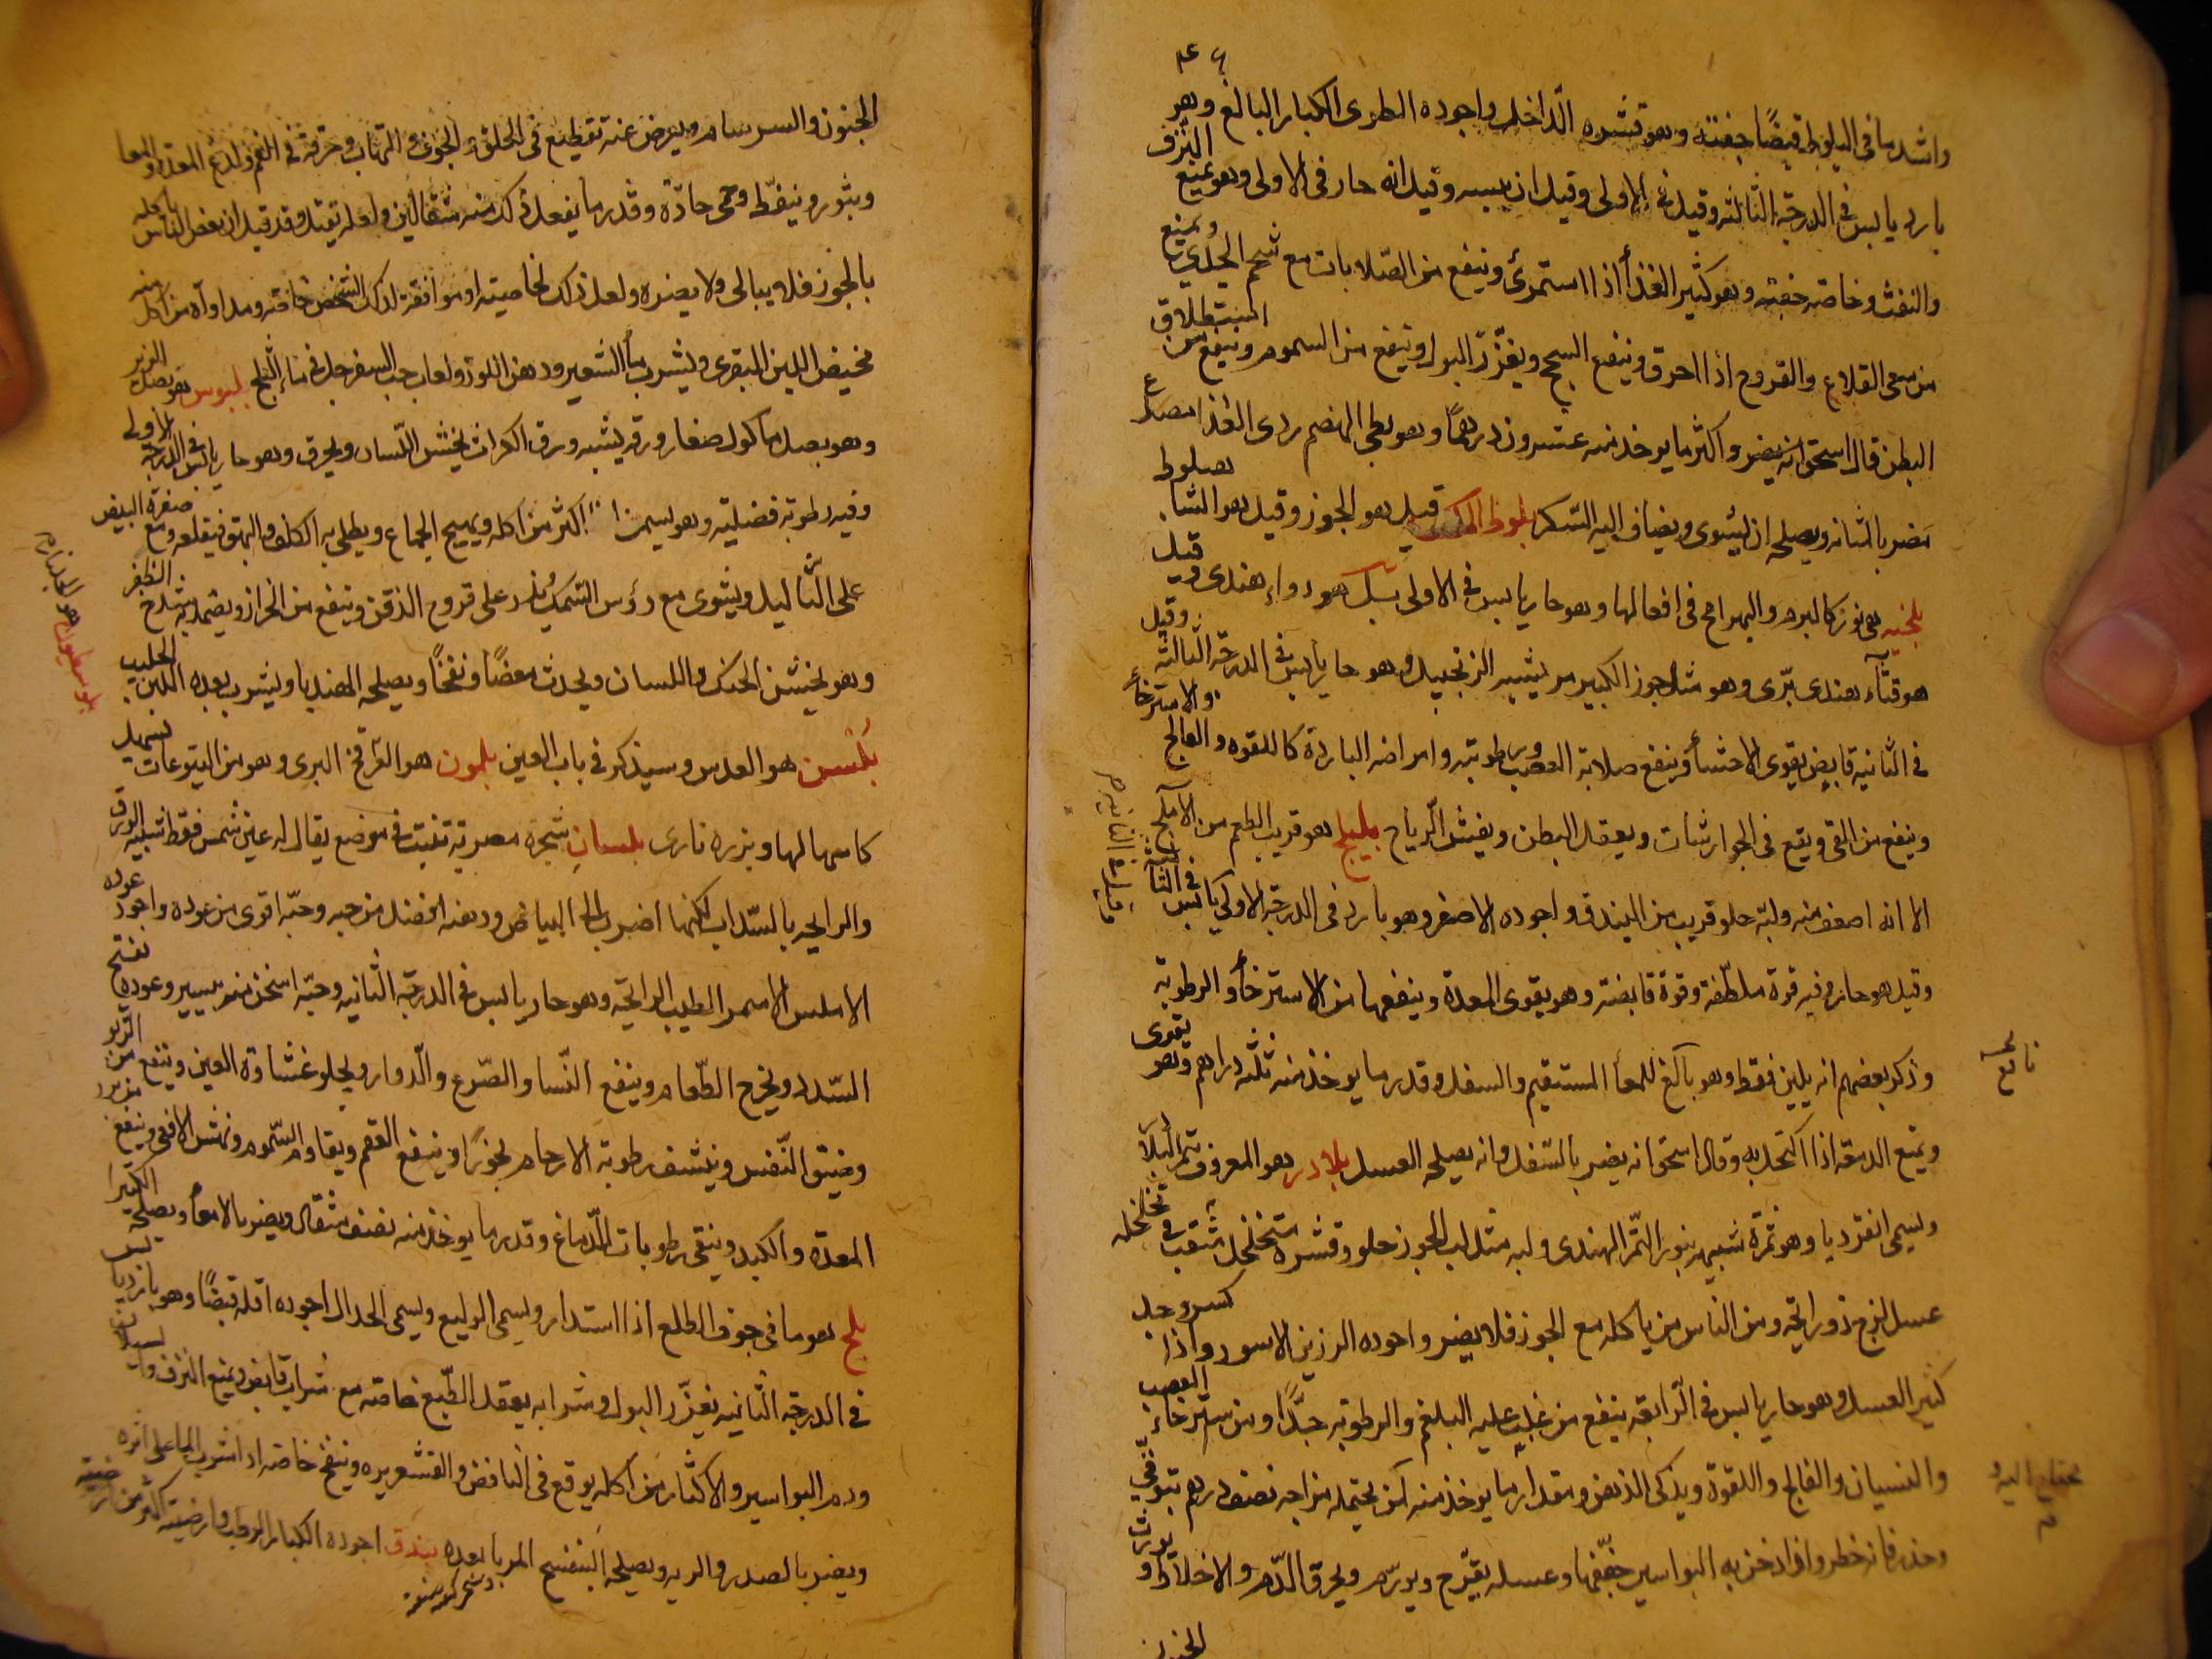 واشد ما فى البلوط قبضًا جفته وهو قشره الدّاخل واجوده الطرى الكبار البالغ وهو
بارد يابس فى الدرجة الثالثه وقيل فى الاولى وقيل ان يبسه وقيل انه حار فى الاولى وهو يمنع النزف
والنفث وخاصة جفته وهو كثير الغذأ اذا استمرئ وينفع من الصّلابات مع شحم الجدى ويمنع
من سعى القلاع والقروح اذا احرق وينفع السحج ويغزّر البول وينفع من السموم وينفع من استطلاق
البطن قال اسحق انه يضر واكثر ما يوخذ منه عشرون درهمًا وهو بطى الهضم ردى الغذا مصدع
مضر بالمثانه ويصلحه ان يشوى ويضاف اليه السّكر بلوط الملك قيل هو الجوز وقيل هو الشاهبلوط
بلجيه هى نور كالبرم والبهرامج فى افعالها وهو حار يابس فى الاولى بل هو دواء هندى وقيل
هو قثآء هندى برّى وهو مثل جوز الكبير مر يشبه الزنجبيل وهو حار يابس فى الدرجة الثالثه وقيل
فى الثانيه قابض يقوى الاحشأ وينفع صلابة العصب ورطوبته وامراضه الباردة كاللقوه والفالج والاسترخأ
وينفع من القى ويقع فى الجوارشات ويعقل البطن ويفش الرّياح بليلج هو قريب الطعم من الاملج
الا انه اضعف منه ولبّه حلو قريب من البندق واجوده الاصفر وهو بارد فى الدرجة الاولى يابس فى الثانية
وقيل هو حار وفيه قوة ملطّفة وقوة قابضة وهو يقوى المعدة وينفعها من الاسترخأ والرطوبة
وذكر بعضهم انه يلين فقط وهو بالغ للمعأ المستقيم والسفل وقدر ما يوخذ منه ثلثة دراهم وهو يقوى
نافع
ويمنع الدمعة اذا اكتحل به وقال اسحق انه يضر بالسّفل وانه يصلحه العسل بلادر هو المعروف بثمر البلاد
ويسمى انقرديا وهو ثمرة شبيهة بنوى التّمر الهندى ولبه مثل لب الجوز حلو وقشره متخلخل مثقب فى تخلخله
عسل لزج ذو رائحة ومن الناس من ياكله مع الجوز فلا يضر واجوده الرزين الاسود واذا كسر وجد
كثير العسل وهو حار يابس فى الرّابعة ينفع من غلب عليه البلغم والرطوبة جدًّا ومن استرخاء العصب
والنسيان والفالج واللقوة ويذكى الذهن ومقدار ما يوخذ منه لمن يحتمله مزاجه نصف درهم
يحتاج اليه و
وحذر فانه خطر واذا دخن به البواسير جفّفها وعسله يقرّح ويورّم ويحرق الدّم والاخلاط ويورث
الجنون
الجنون والسرسام ويعرض عنه تقطيع فى الحلق والجوف والتهاب وحرقة فى الفم ولدغ المعدة والمعا
وبثور وينفّط وحمى حادّة وقدر ما يفعل ذلك منه مثقالين ولعله يقتل وقد قيل ان بعض الناس ياكله
بالجوز فلا يبالى ولا يضره ولعل ذلك لخاصيته او موافقة لذلك الشخص خاصة ومداواة من اكل منه
مخيض اللبن البقرى ويشرب مأ الشعير ودهن اللوز ولعاب حب السفرجل فى ماء الثلج بلبوس هو بصل الزير
وهو بصل ماكول صغار ورقه يشبه ورق الكراث يخشن اللّسان ويحرق وهو حار يابس فى الدرجة الاولى
وفيه رطوبة فضلية وهو يسمن اكثر من اكله ويهيج الجماع ويطلى به الكلف والبهق فيقلعه ومع صفرة البيض
على الثّاليل ويشوى مع رؤس السّمك ويذر على قروح الذقن وينفع من الحزاز ويضمد به شدخ الظفر
وهو يخشن الحنك واللسان ويحدث مغصًا ونفخًا ويصلحه الهندبا ويشرب بعده اللبن الحليب
بلسن هو العدس وسيذكر فى باب العين بلمون هو الفرفخ البرى وهو من اليتوعات تسهل
كاسهالها وبزره نارى بلسان شجرة مصرية تنبت فى موضع يقال له عين شمس فقط شبيه الورق
والرايحه بالسّداب لكنها اضرب الى البياض ودهنه افضل من حبه وحبّه اقوى من عوده واجود عوده
الاملس الاسمر الطيب الرايحة وهو حار يابس فى الدرجة الثانيه وحبّه اسخن منه بيسير وعوده يفتح
السّدد ويخرج الطّعام وينفع النّسا والصّرع والدّوار ويجلو غشاوة العين وينفع من الرّبو
وضيق النّفس وينشف رطوبة الارحام بخورًا وينفع العقم ويقاوم السّموم ونهش الافعى وينفع من برد
المعدة والكبد وينقى رطوبات الدّماغ وقدر ما يوخذ منه نصف مثقال ويضر بالامعأ ويصلحه الكثيرا
بلح هو ما فى جوف الطلع اذا استدار ويسمى الوليع ويسمى الحدال اجوده اقله قبضًا وهو بارد يابس
فى الدرجة الثانيه يغزّر البول وشرابه يعقل الطّبع خاصة مع شراب قابض ويمنع النزف وسيلان
ودم البواسير والاكثار من اكله يوقع فى النافض والقشعريره وينفخ خاصة اذا شرب الما على اثره
ويضر بالصدر والريه ويصلحه البنفسج المربا بعده بندق اجوده الكبار الرطب وارضيته اكثر من ارضية